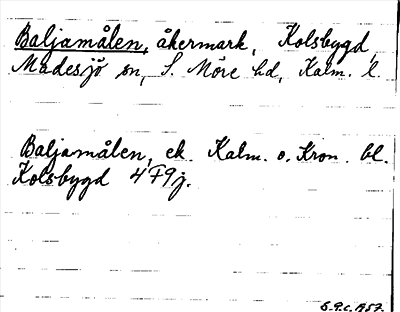 Baljamålen, åkermark, Kolsbygd,
Madesjö sn, S. Möre hd, Kalm. l.
Baljamålen, ek. Kalm. o. Kron. bl.
Kolsbygd 4 F 9 j.